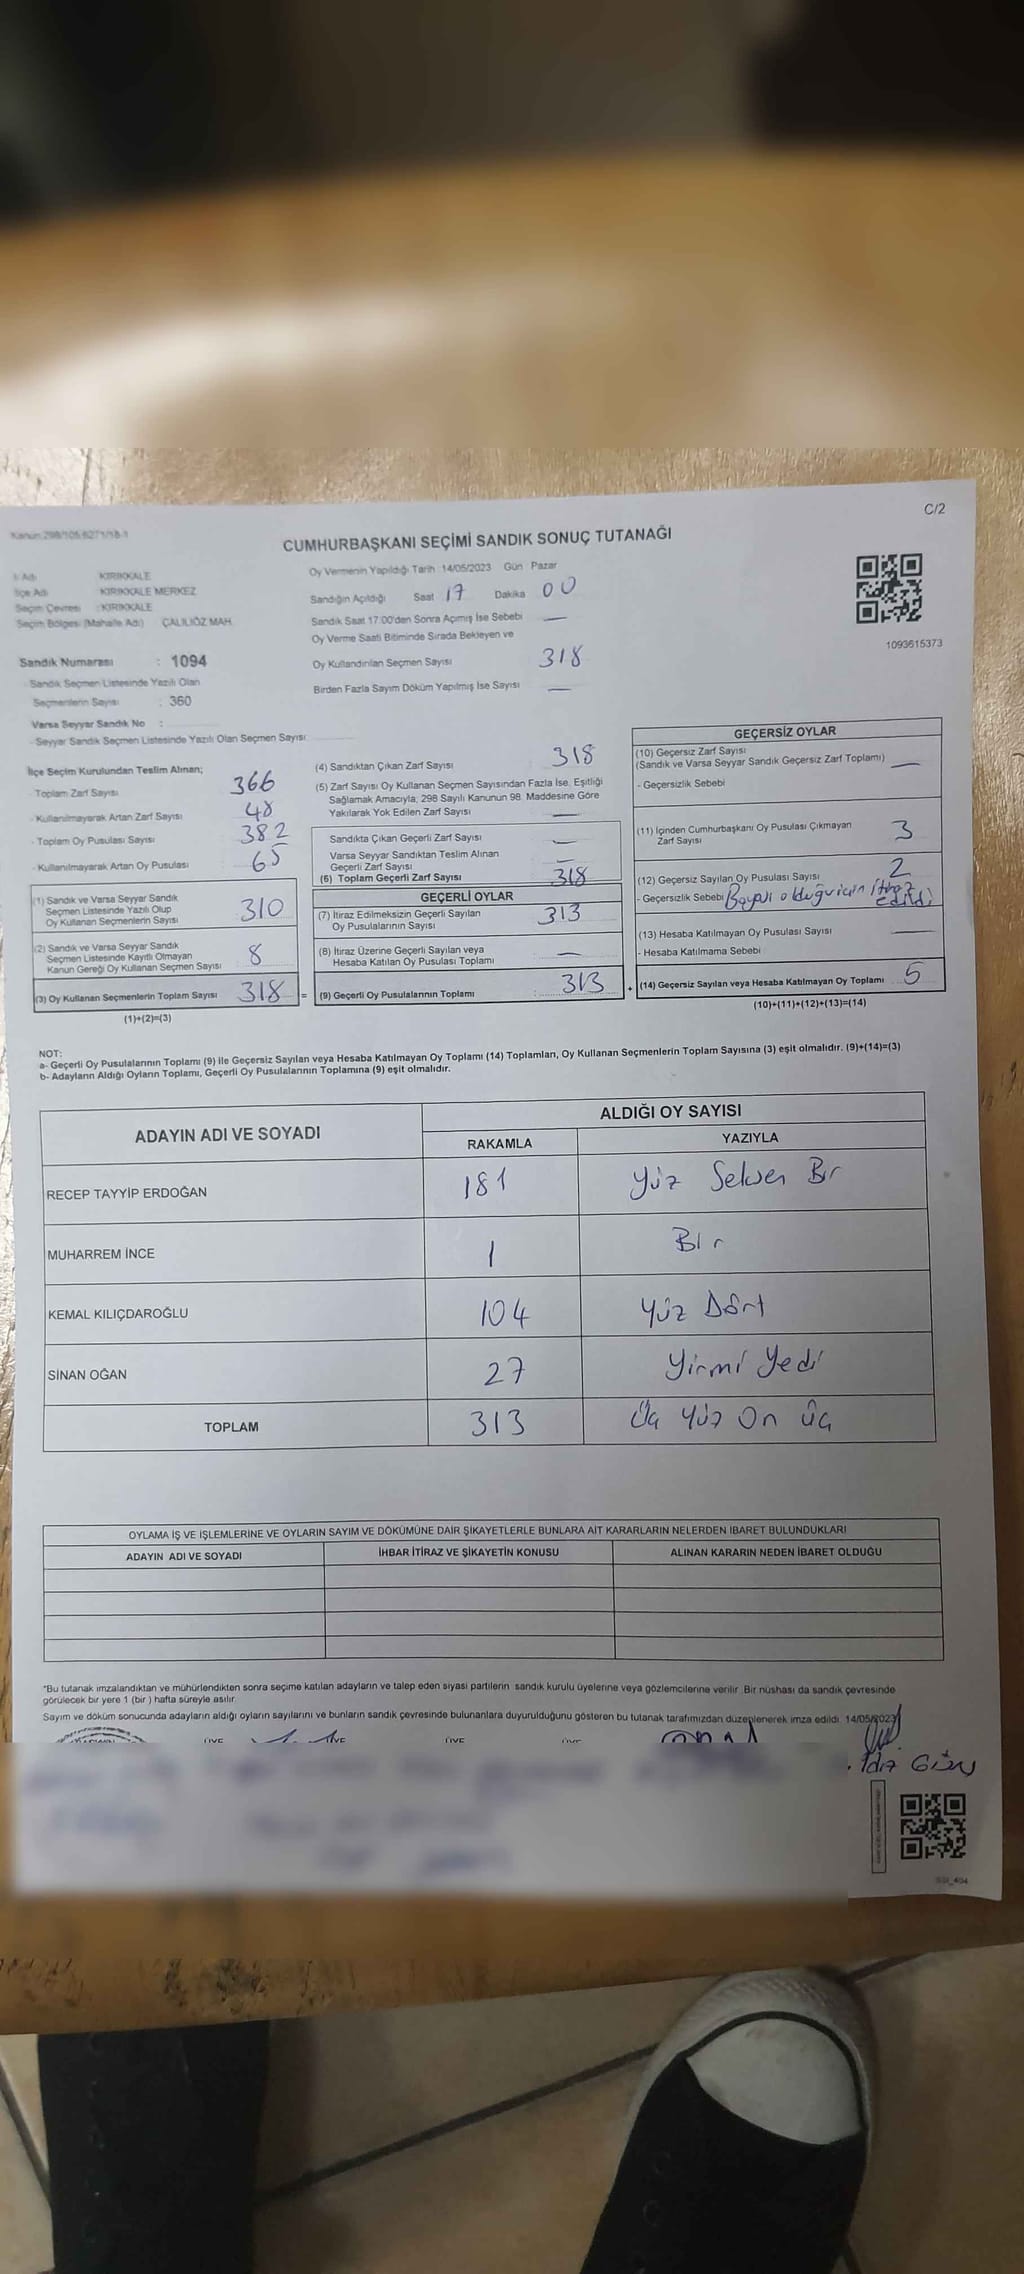 Kanun:298/105,6271/18-1
C/2
CUMHURBAŞKANI SEÇİMİ SANDIK SONUÇ TUTANAĞI
İl Adı KIRIKKALE
İlçe Adı KIRIKKALE MERKEZ
Seçim Çevresi : KIRIKKALE
Seçim Bölgesi (Mahalle Adı) ÇALILIÖZ MAH.
Sandık Numarası : 1094
- Sandık Seçmen Listesinde Yazılı Olan
Seçmenlerin Sayısı : 360
Varsa Seyyar Sandık No :
- Seyyar Sandık Seçmen Listesinde Yazılı Olan Seçmen Sayısı:
Oy Vermenin Yapıldığı Tarih :14/05/2023 Gün : Pazar
Sandığın Açıldığı Saat 17 Dakika 00
Sandık Saat 17:00'den Sonra Açımış İse Sebebi —
Oy Verme Saati Bitiminde Sırada Bekleyen ve
Oy Kullandırılan Seçmen Sayısı 318
Birden Fazla Sayım Döküm Yapılmış İse Sayısı —
1093615373
İlçe Seçim Kurulundan Teslim Alınan;
- Toplam Zarf Sayısı 366
- Kullanılmayarak Artan Zarf Sayısı 48
- Toplam Oy Pusulası Sayısı 382
- Kullanılmayarak Artan Oy Pusulası 65
(1) Sandık ve Varsa Seyyar Sandık
Seçmen Listesinde Yazılı Olup
Oy Kullanan Seçmenlerin Sayısı 310
(2) Sandık ve Varsa Seyyar Sandık
Seçmen Listesinde Kayıtlı Olmayan
Kanun Gereği Oy Kullanan Seçmen Sayısı 8
(3) Oy Kullanan Seçmenlerin Toplam Sayısı 318 =
(1)+(2)=(3)
(4) Sandıktan Çıkan Zarf Sayısı : 318
(5) Zarf Sayısı Oy Kullanan Seçmen Sayısından Fazla İse, Eşitliği
Sağlamak Amacıyla; 298 Sayılı Kanunun 98. Maddesine Göre
Yakılarak Yok Edilen Zarf Sayısı —
Sandıkta Çıkan Geçerli Zarf Sayısı —
Varsa Seyyar Sandıktan Teslim Alınan
Geçerli Zarf Sayısı —
(6) Toplam Geçerli Zarf Sayısı 318
GEÇERLİ OYLAR
(7) İtiraz Edilmeksizin Geçerli Sayılan
Oy Pusulalarının Sayısı 313
(8) İtiraz Üzerine Geçerli Sayılan veya
Hesaba Katılan Oy Pusulası Toplamı —
(9) Geçerli Oy Pusulalarının Toplamı : 313 +
GEÇERSİZ OYLAR
(10) Geçersiz Zarf Sayısı
(Sandık ve Varsa Seyyar Sandık Geçersiz Zarf Toplamı) —
- Geçersizlik Sebebi
(11) İçinden Cumhurbaşkanı Oy Pusulası Çıkmayan
Zarf Sayısı 3
(12) Geçersiz Sayılan Oy Pusulası Sayısı 2
- Geçersizlik Sebebi Boyalı olduğu için itiraz
edildi
(13) Hesaba Katılmayan Oy Pusulası Sayısı —
- Hesaba Katılmama Sebebi
(14) Geçersiz Sayılan veya Hesaba Katılmayan Oy Toplamı 5
(10)+(11)+(12)+(13)=(14)
NOT:
a- Geçerli Oy Pusulalarının Toplamı (9) ile Geçersiz Sayılan veya Hesaba Katılmayan Oy Toplamı (14) Toplamları, Oy Kullanan Seçmenlerin Toplam Sayısına (3) eşit olmalıdır. (9)+(14)=(3)
b- Adayların Aldığı Oyların Toplamı, Geçerli Oy Pusulalarının Toplamına (9) eşit olmalıdır.
ADAYIN ADI VE SOYADI
ALDIĞI OY SAYISI
RAKAMLA YAZIYLA
RECEP TAYYİP ERDOĞAN 181 Yüz Seksen Bir
MUHARREM İNCE 1 Bir
KEMAL KILIÇDAROĞLU 104 Yüz Dört
SİNAN OĞAN 27 Yirmi Yedi
TOPLAM 313 Üç Yüz On üç
OYLAMA İŞ VE İŞLEMLERİNE VE OYLARIN SAYIM VE DÖKÜMÜNE DAİR ŞİKAYETLERLE BUNLARA AİT KARARLARIN NELERDEN İBARET BULUNDUKLARI
ADAYIN ADI VE SOYADI İHBAR İTİRAZ VE ŞİKAYETİN KONUSU ALINAN KARARIN NEDEN İBARET OLDUĞU
*Bu tutanak imzalandıktan ve mühürlendikten sonra seçime katılan adayların ve talep eden siyasi partilerin sandık kurulu üyelerine veya gözlemcilerine verilir. Bir nüshası da sandık çevresinde
görülecek bir yere 1 (bir ) hafta süreyle asılır.
Sayım ve döküm sonucunda adayların aldığı oyların sayılarını ve bunların sandık çevresinde bulunanlara duyurulduğunu gösteren bu tutanak tarafımızdan düzenlenerek imza edildi. 14/05/2023
ÜYE ÜYE ÜYE ÜYE